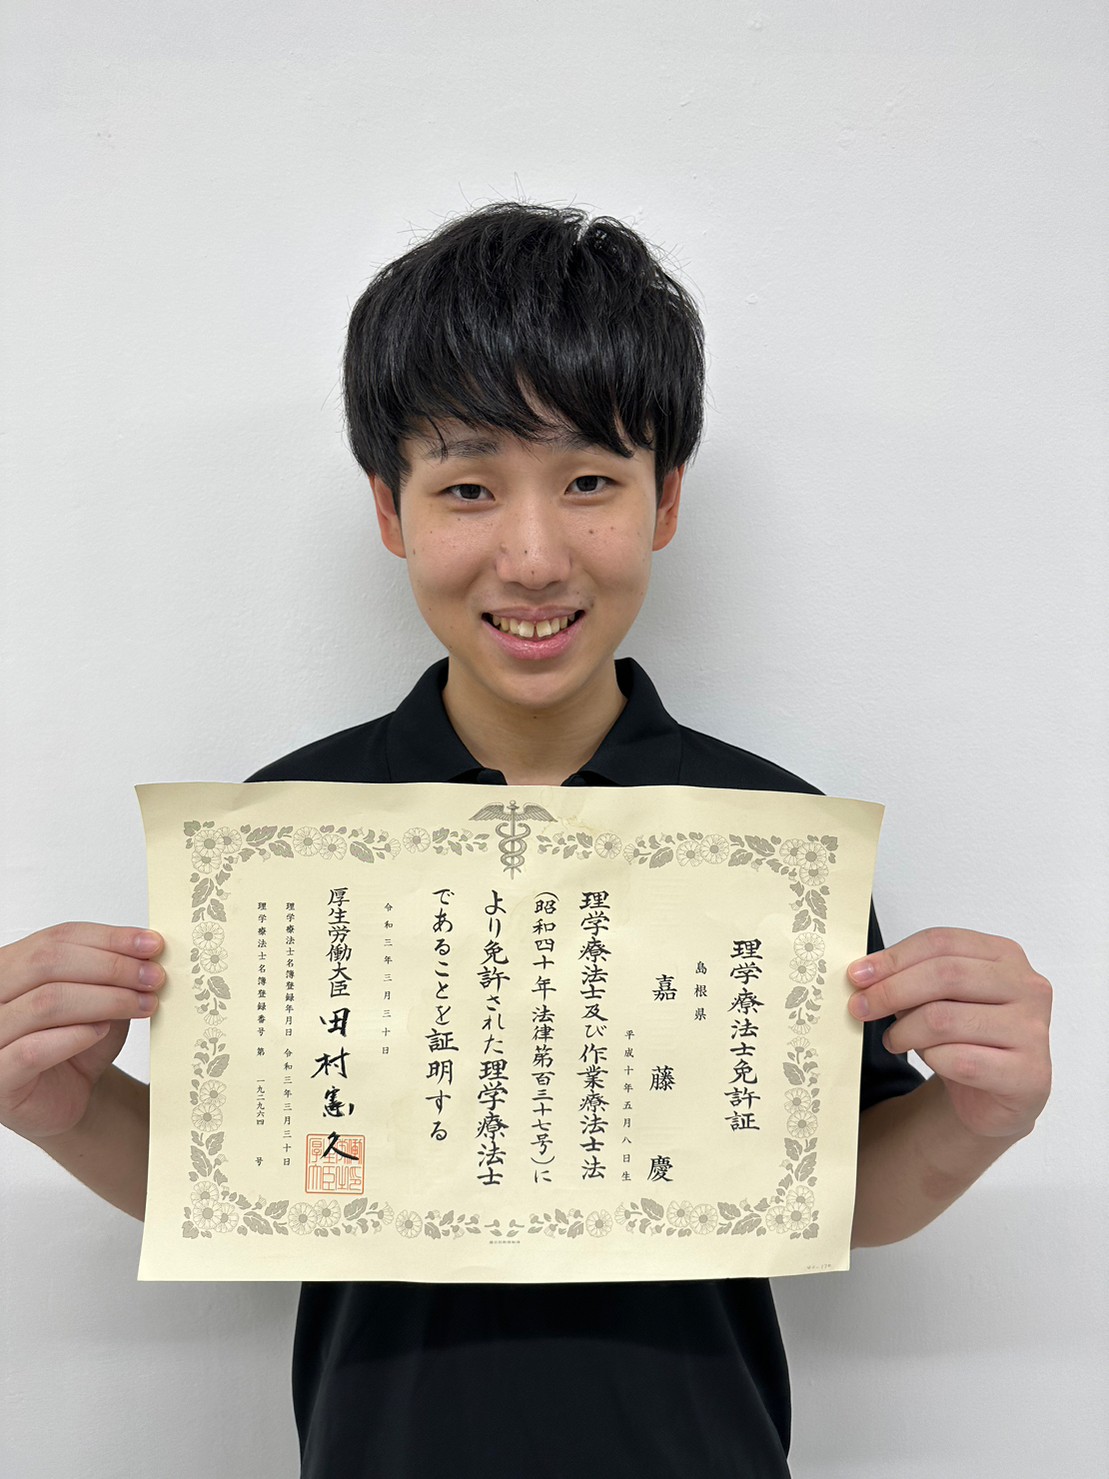 理学療法士免許証
島根県
嘉藤慶
平成十年五月八日生
理学療法士及び作業療法士法
(昭和四十年法律第百三十七号)に
より免許された理学療法士
であることを証明する
令和三年三月三十日
厚生労働大臣 田村憲久
理学療法士名簿登録年月日 令和三年三月三十日
理学療法士名簿登録番号 第 一九二九六四 号